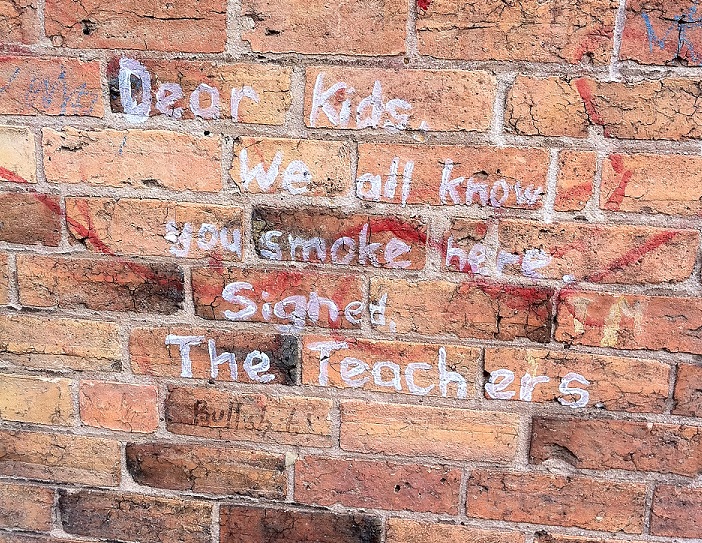 Dear Kids,
We all know
you smoke here.
Signed,
The Teachers